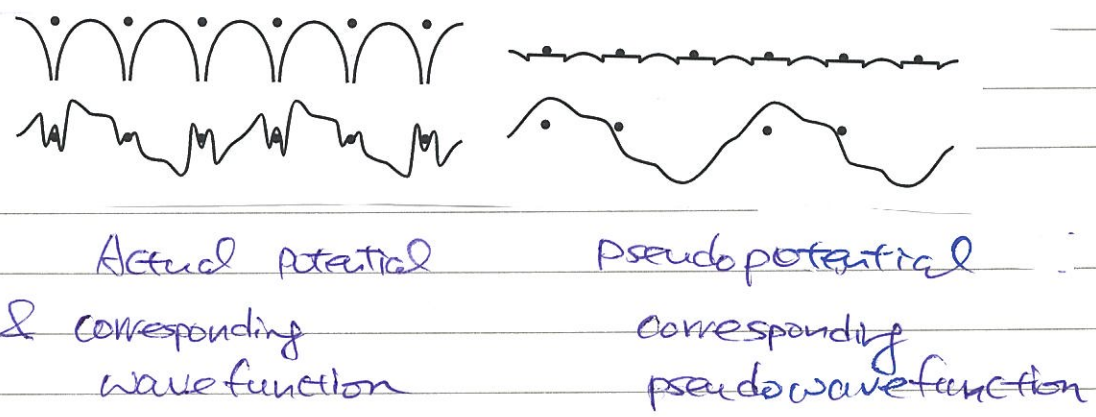 Actual potential
& corresponding
wavefunction
pseudopotential
corresponding
pseudowavefunction